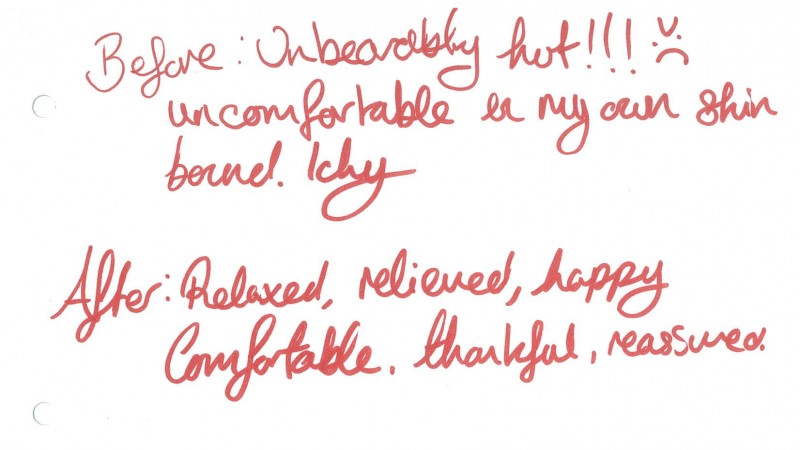 Before: Unbearably hot!!! :(
uncomfortable in my own skin
bound. Ichy
After: Relaxed, relieved, happy
Comfortable, thankful, reassured.